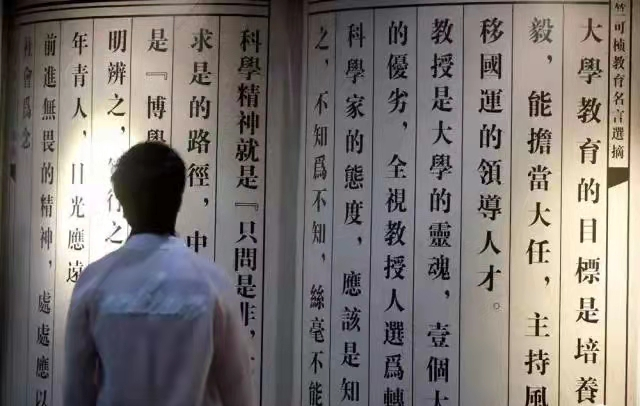 竺可楨教育名言選摘
大學教育的目標是培養
毅，能擔當大任，主持風
移國運的領導人才。
教授是大學的靈魂，壹個大
的優劣，全視教授人選爲轉
科學家的態度，應該是知
之，不知爲不知，絲毫不能
科學精神就是『只問是非，
求是的路徑，中
是『博學
明辨之，篤行之
年青人，目光應遠
前進無畏的精神，處處應以
社會爲念